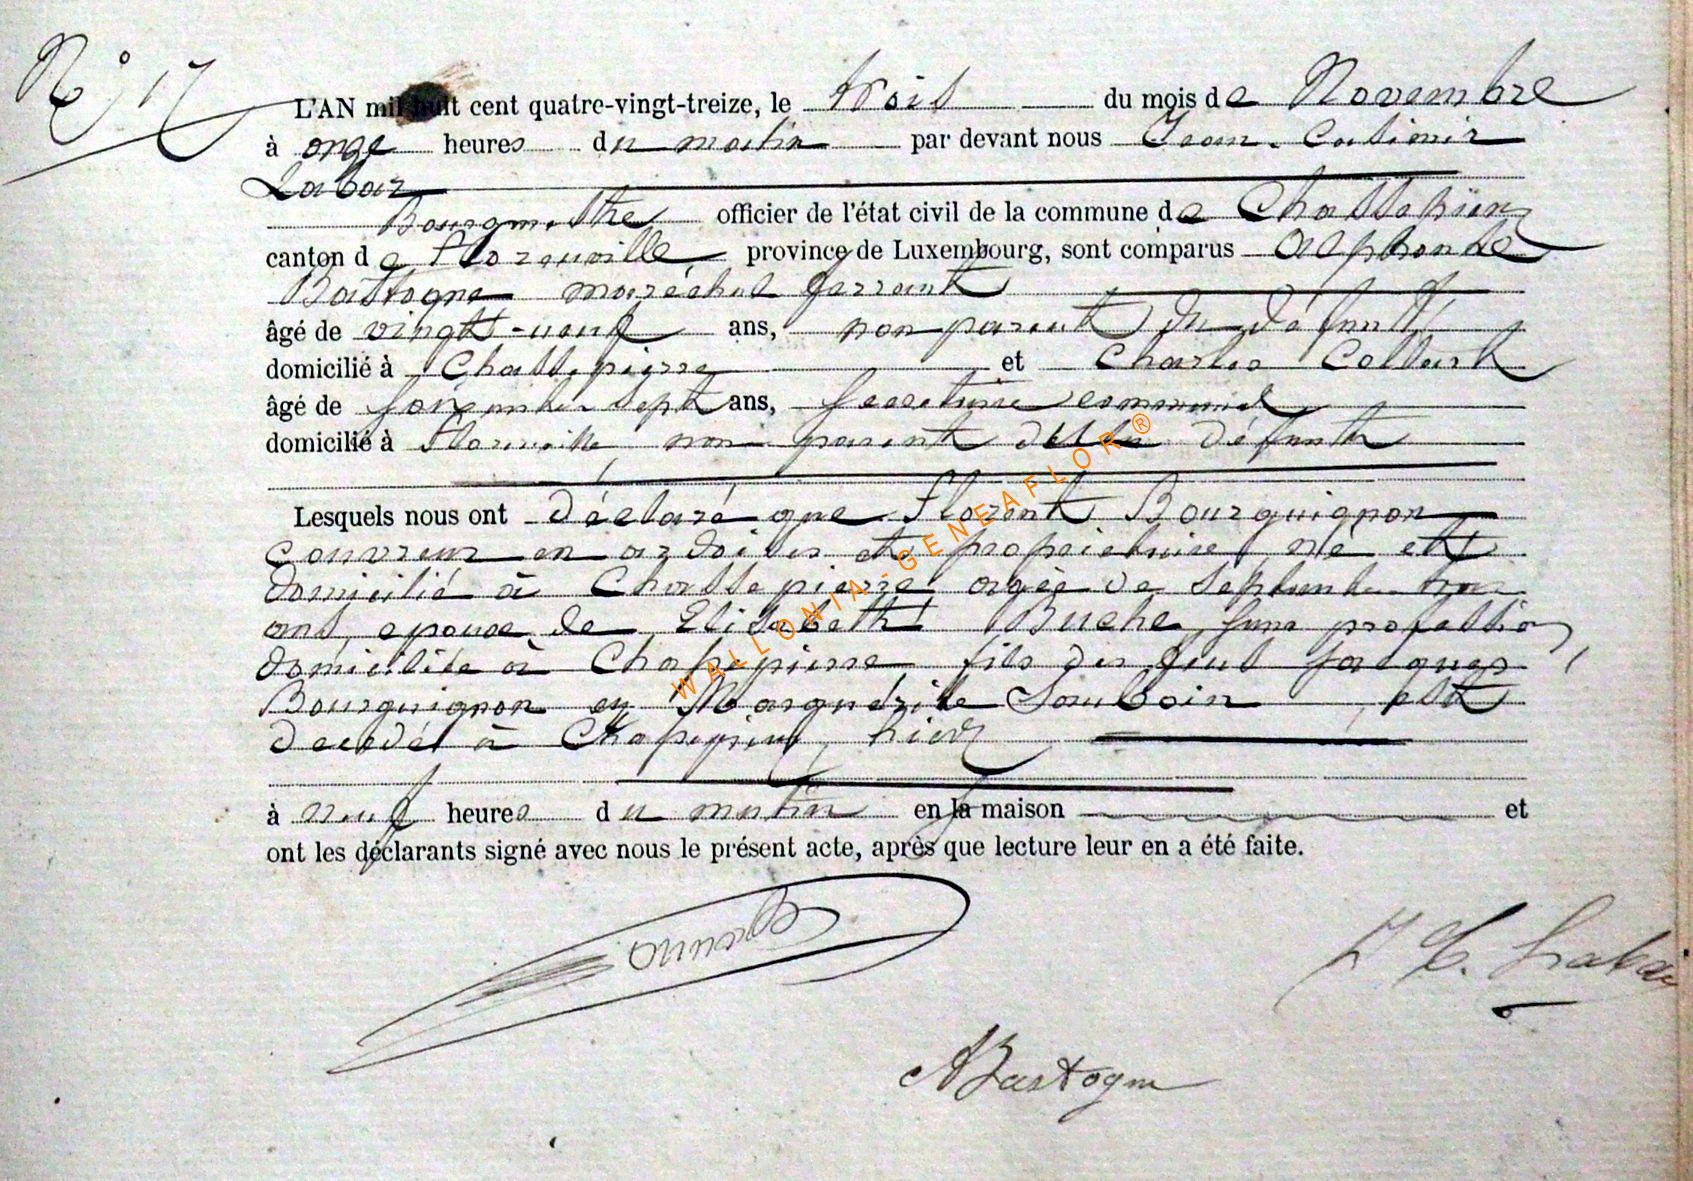 N° 17
L'AN mil huit cent quatre-vingt-treize, le trois du mois de Novembre
à onze heures du matin par devant nous Jean-Casimir
Labar
Bourgmestre officier de l'état civil de la commune de Chassepierre
canton de Florenville province de Luxembourg, sont comparus Alphonse
Bastogne maréchal ferrant
âgé de vingt-neuf ans, non parent du défunt
domicilié à Chassepierre et Charles Collart
âgé de soixante sept ans, secrétaire communal
domicilié à Florenville non parent défunt
Lesquels nous ont déclaré que Florent Bourguignon
couvreur en ardoises et propriétaire, né et
domicilié à Chassepierre agée de septante
ans, epoux de Elisabeth Buche, sans profession,
domiciliée à Chassepierre fils des feus Jacques
Bourguignon et Marguerite est
decedé à Chassepierre, hier
à neuf heures du matin en sa maison et
ont les déclarants signé avec nous le présent acte, après que lecture leur en a été faite.
J C. Labar
ABastogne
WALLONIA-GENEAFLOR®